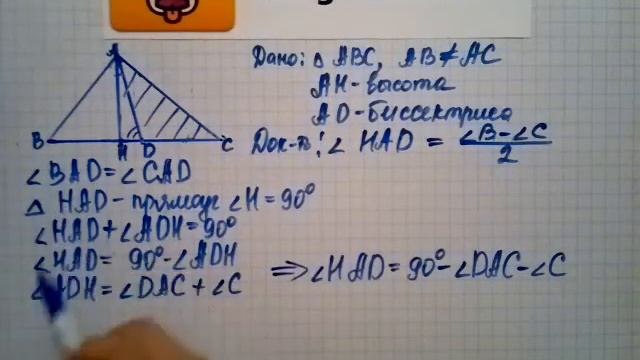 Дано: △ ABC, AB ≠ AC
AH - высота
AD - биссектриса
Док-ть: ∠ HAD = ∠B - ∠C / 2
A
B
H
D
C
∠BAD = ∠CAD
△ HAD - прямоуг ∠H = 90°
∠HAD + ∠ADH = 90°
∠HAD = 90° - ∠ADH
∠ADH = ∠DAC + ∠C
⇒ ∠HAD = 90° - ∠DAC - ∠C